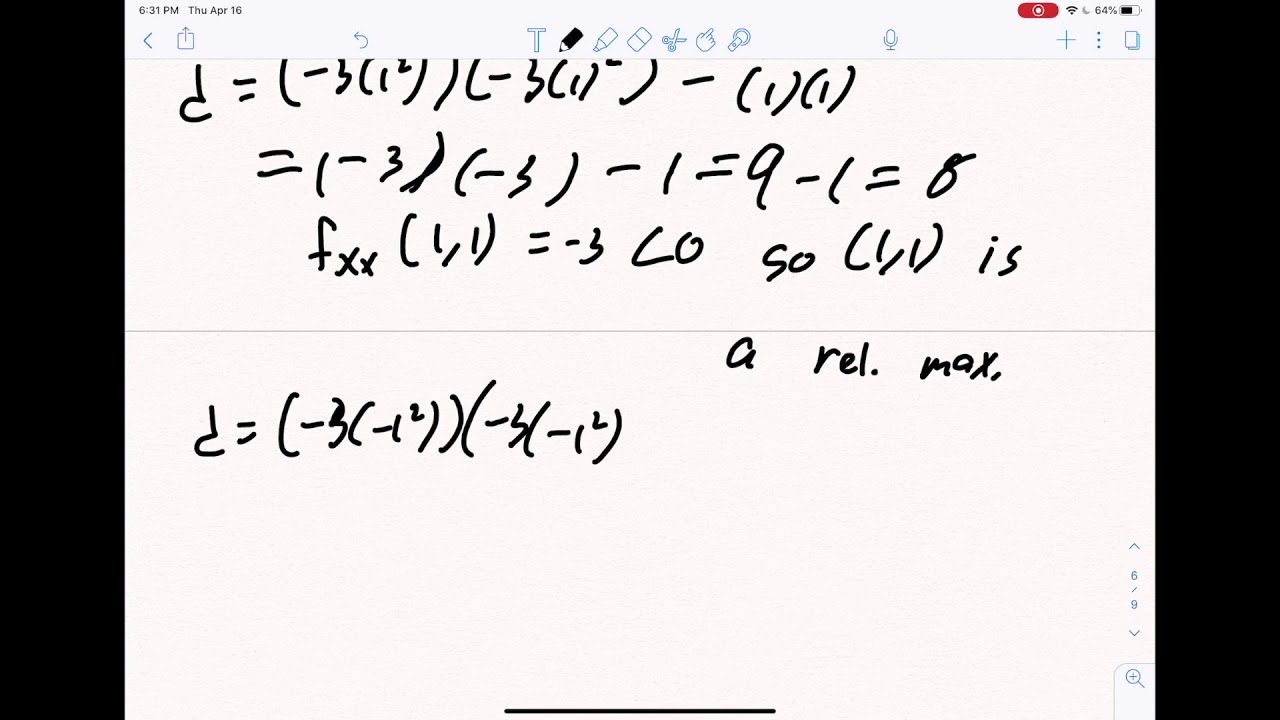 6:31 PM Thu Apr 16
64%
T
d = (-3(1²))(-3(1)²) - (1)(1)
= (-3)(-3) - 1 = 9 - 1 = 8
fxx (1,1) = -3 < 0 so (1,1) is
a rel. max.
d = (-3(-1²))(-3(-1²)
6
/
9